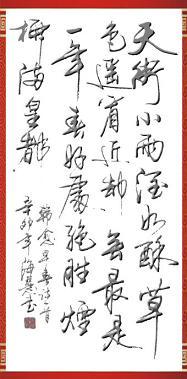 天街小雨润如酥草
色遥看近却无最是
一年春好处绝胜烟
柳满皇都
韩愈早春诗一首
辛卯年